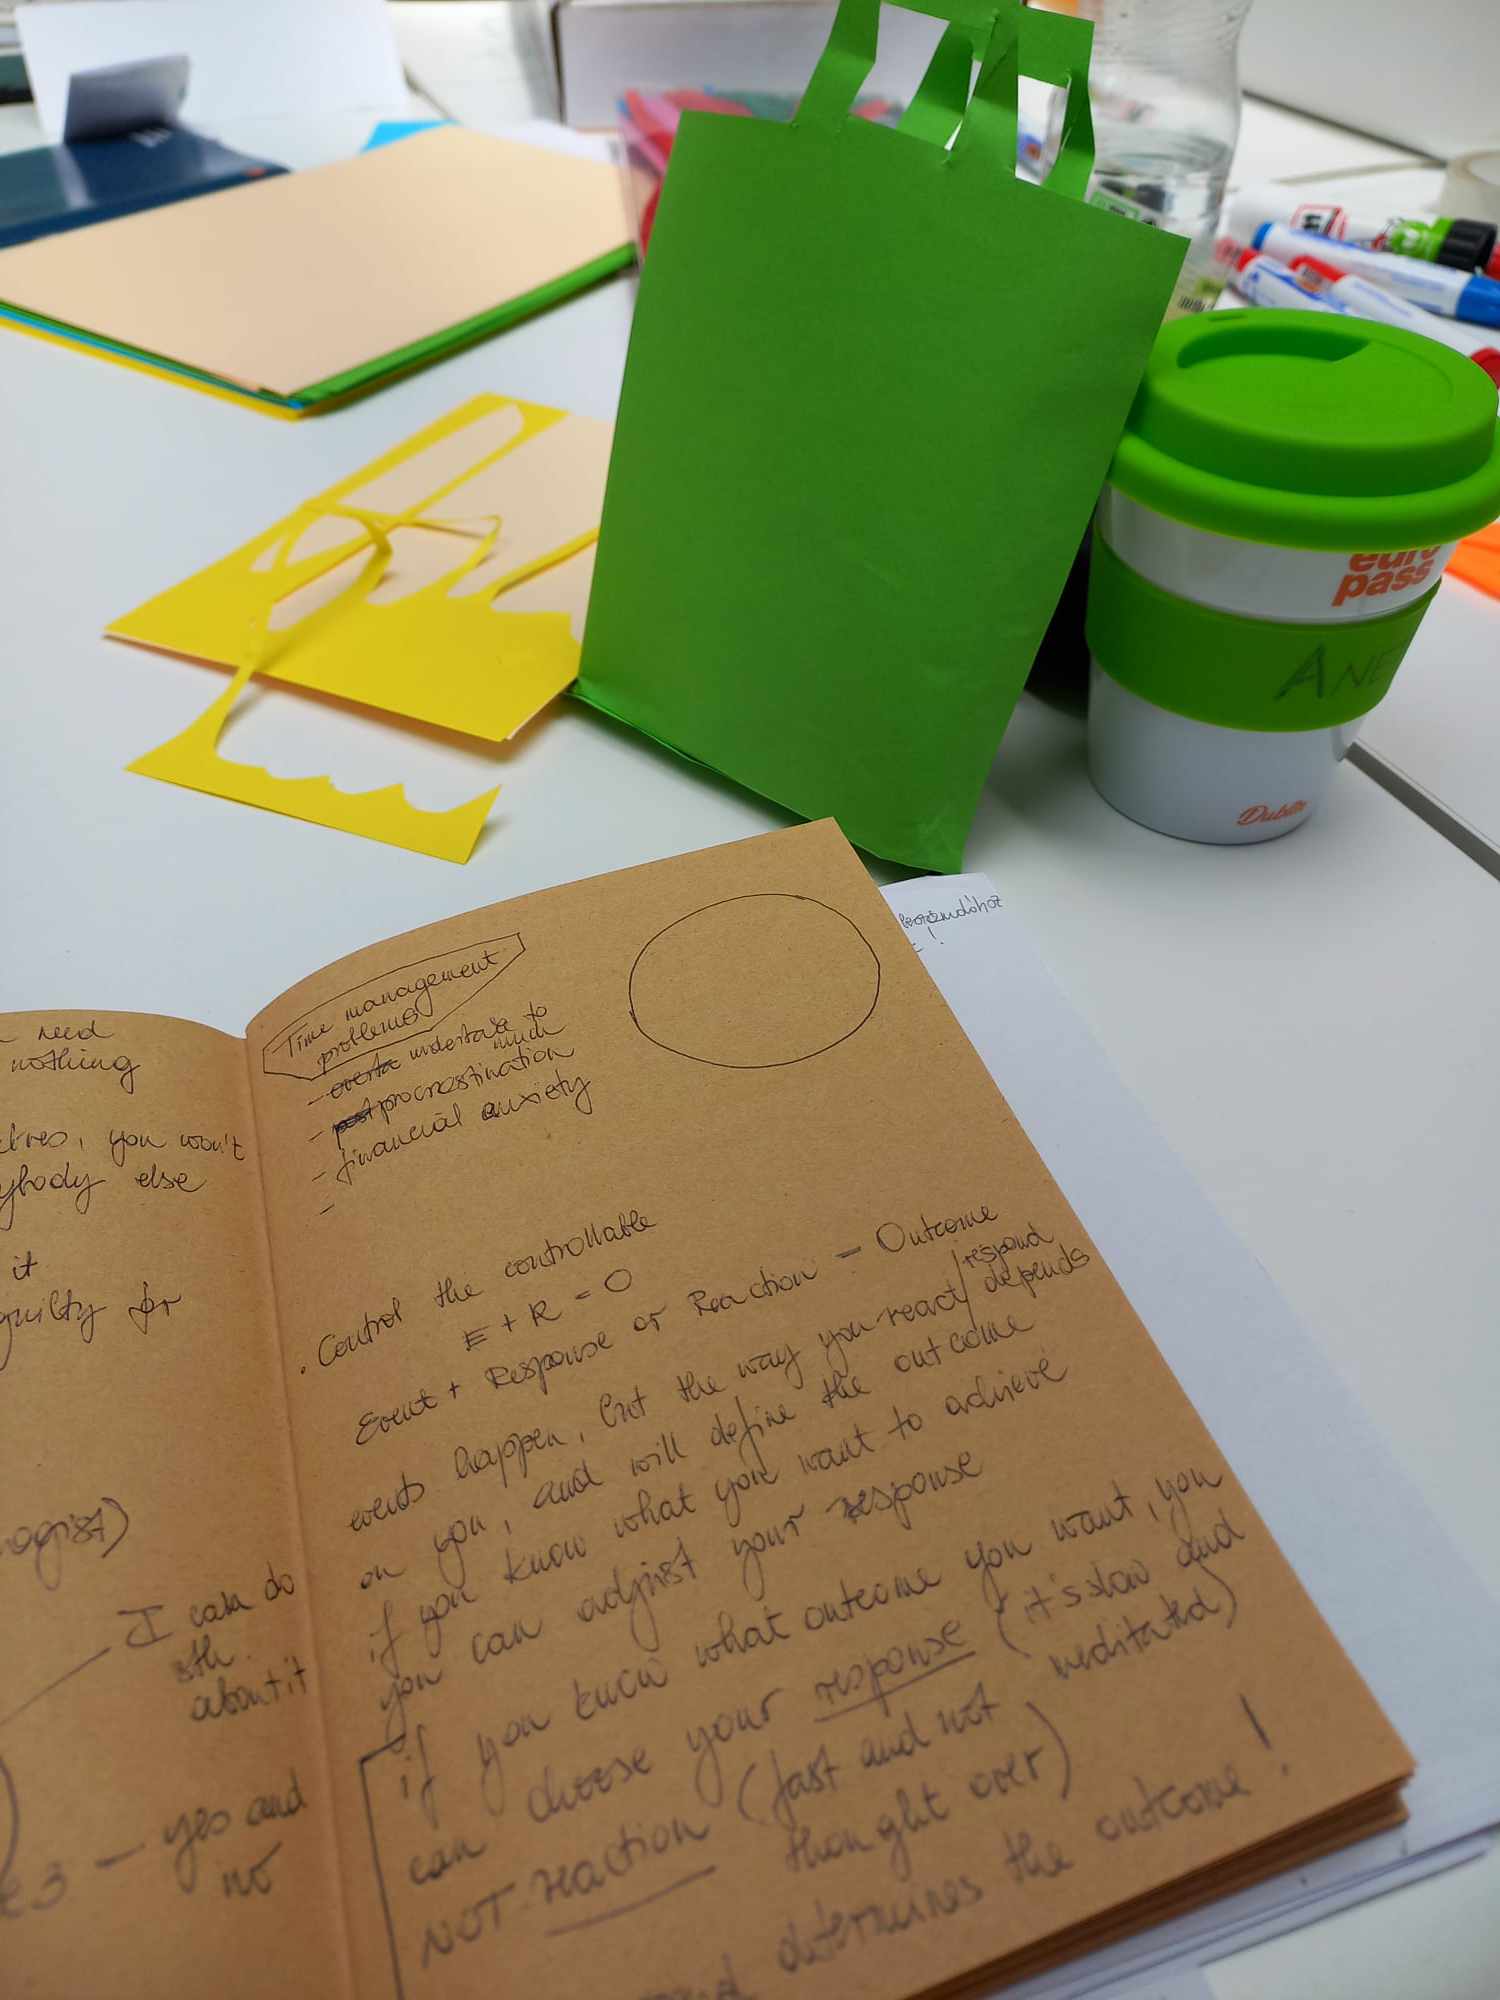 euro
pass
ANE
Dublin
need
nothing
you won't
ybody else
it
guilty for
I can do
sth.
about it
yes and
no
Time management
problems
- overta undertake to
much
- post procrastination
- financial anxiety
-
. Control the controllable
E + R = O
Event + Response or Reaction = Outcome
events happen, but the way you react/respond depends
on you, and will define the outcome
if you know what you want to achieve
you can adjust your response
if you know what outcome you want, you
can choose your response (it's slow and
meditated)
NOT reaction (fast and not
thought over)
determines the outcome!